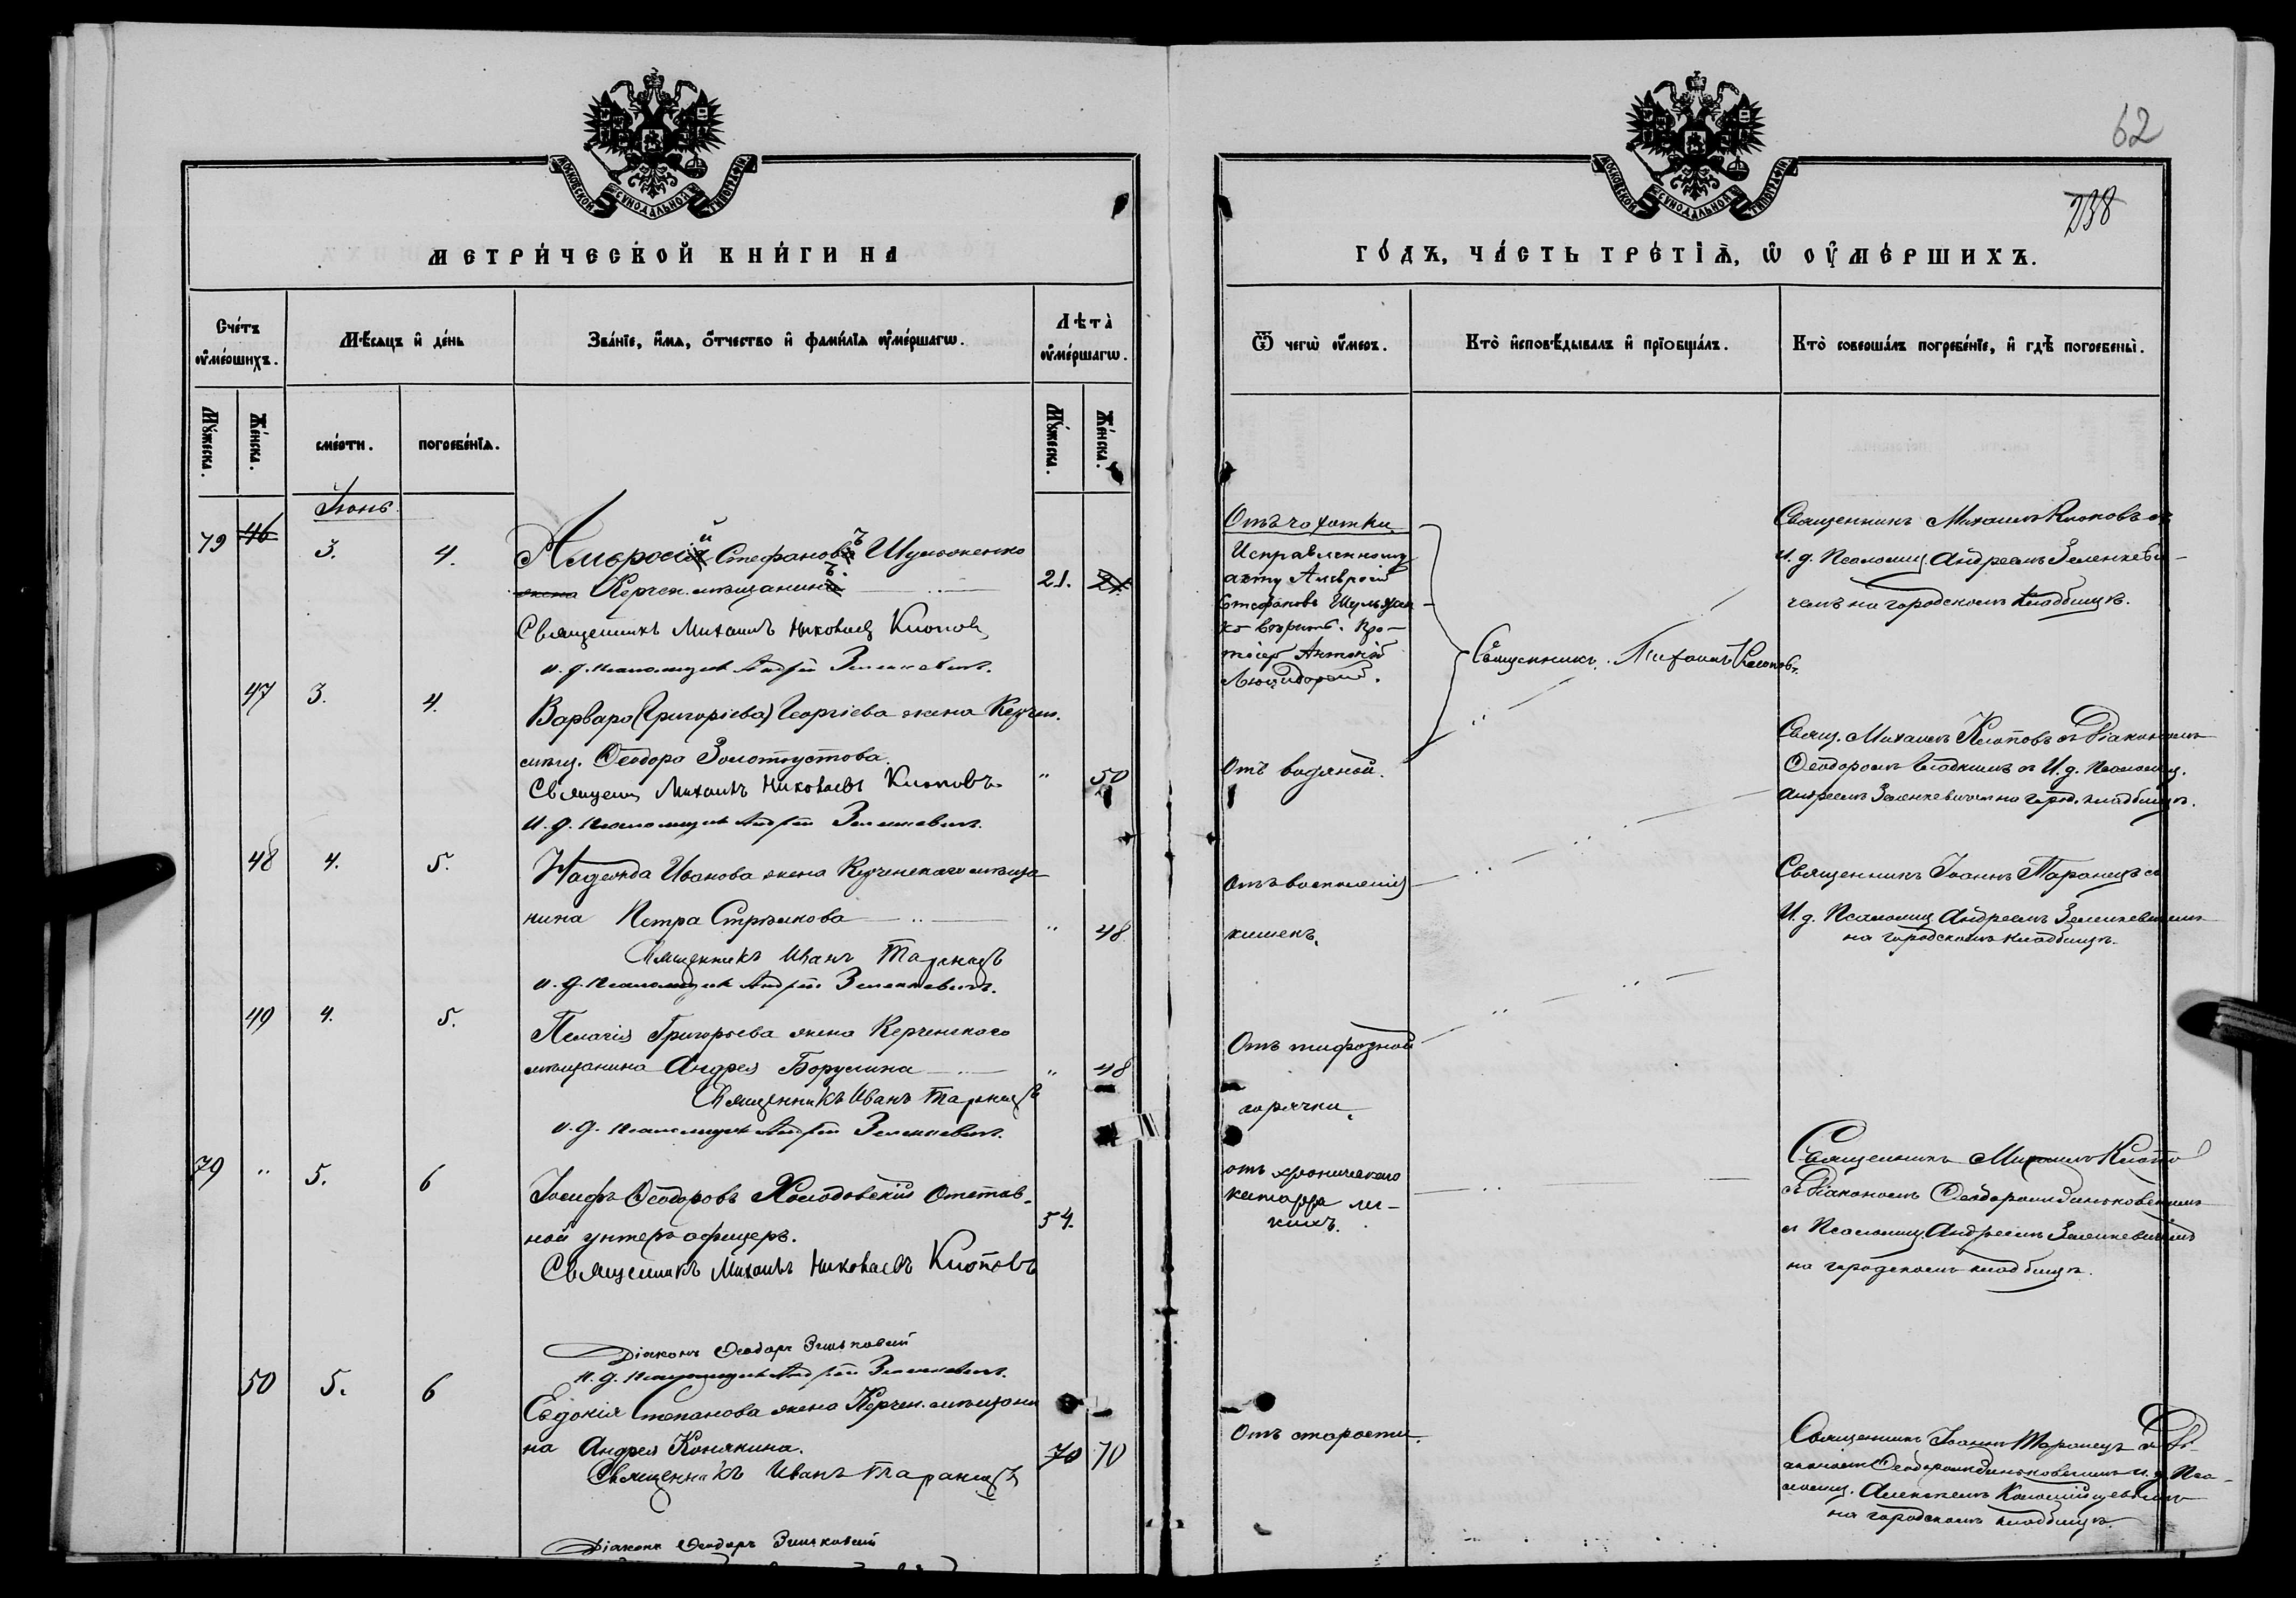 62
238
МОСКОВСКОЙ СѴНОДАЛЬНОЙ ТИПОГРАФІИ
МОСКОВСКОЙ СѴНОДАЛЬНОЙ ТИПОГРАФІИ
МЕТРИ́ЧЕСКОЙ КНИ́ГИ НА
ГО́ДЪ, ЧА́СТЬ ТРЕ́ТІѦ, Ѿ ОУ҆МЕ́РШИХЪ.
Сче́тъ
оу҆ме́ршихъ.
Мѣ́сяцъ и҆ де́нь
Зва́нїе, и҆́мя, ѻ҆́тчество и҆ фами́лїя оу҆ме́ршагѡ.
Лѣта̀
оу҆ме́ршагѡ.
Му́жеска.
Же́нска.
сме́рти.
погребе́нїя.
Му́жеска.
Же́нска.
Ѿ чегѡ̀ оу҆́меръ.
Кто̀ и҆сповѣ́дывалъ и҆ прїобща́лъ.
Кто̀ соверша́лъ погребе́нїе, и҆ гдѣ̀ погребены̀.
Іюнь.
79 46 3. 4. Амвросій Стефановъ Шульженко
жена Керчен. мѣщанинъ 21. 21
Священникъ Михаилъ Николаевъ Клоповъ
и. д. псаломщика Андрей Зеленкевичъ.
Отъ чахотки
Исправленному
акту Амвросій
Стефановъ Шульжен-
ко вѣрить. Про-
тоіер. Антоній
Священникъ Михаилъ Клоповъ.
Священникъ Михаилъ Клоповъ съ
И. д. Псаломщ. Андреемъ Зеленкеви-
чемъ на городскомъ кладбищѣ.
47 3. 4. Варвара (Григорієва) Георгіева жена Керчен.
мѣщ. Ѳеодора Золотоустова.
Священ. Михаилъ Николаевъ Клоповъ " 50
И. д. псаломщика Андрей Зеленкевичъ.
Отъ водяной.
Свящ. Михаилъ Клоповъ съ Діакономъ
Ѳеодоромъ Гладкимъ и И. д. Псаломщ.
Андреемъ Зеленкевичемъ на город. кладбищѣ.
48 4. 5. Надежда Иванова жена Керченскаго мѣща-
нина Петра Стрѣлкова " 48
Священникъ Иванъ Таранецъ
и. д. псаломщика Андрей Зеленкевичъ.
Отъ воспаленія
кишекъ.
Священникъ Іоаннъ Таранецъ съ
И. д. Псаломщ. Андреемъ Зеленкевичемъ
на городскомъ кладбищѣ.
49 4. 5. Пелагія Григорьева жена Керченскаго
мѣщанина Андрея Борулина " 48
Священникъ Иванъ Таранецъ
и. д. псаломщика Андрей Зеленкевичъ.
Отъ тифозной
горячки.
79 " 5. 6 Іосифъ Ѳеодоровъ Холодовскій отстав-
ной унтеръ офицеръ. 54.
Священникъ Михаилъ Николаевъ Клоповъ
Діаконъ Ѳеодоръ Зиньковскій
и. д. псаломщика Андрей Зеленкевичъ.
отъ хроническаго
катарра лег-
кихъ.
Священникъ Михаилъ Клопо
съ Діакономъ Ѳеодоромъ Зиньковскимъ
и Псаломщ. Андреемъ Зеленкевичемъ
на городскомъ кладбищѣ.
50 5. 6 Евдокія Степанова жена Керчен. мѣщани
на Андрея Конякина. 70 70
Священникъ Иванъ Таранецъ
Діаконъ Ѳеодоръ Зиньковскій
Отъ старости.
Священникъ Іоаннъ Таранецъ съ Ді-
акономъ Ѳеодоромъ Зиньковскимъ и. д. Пса-
ломщ. Алексѣемъ Коломійцевымъ
на городскомъ кладбищѣ.